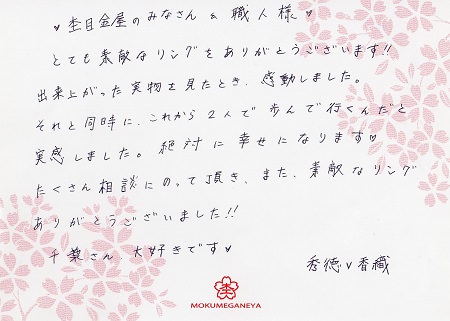 ♥ 杢目金屋のみなさん & 職人様 ♥
とても素敵なリングをありがとうございます!!
出来上がった実物を見たとき、感動しました。
それと同時に、これから2人で歩んで行くんだと
実感しました。絶対に幸せになります♥
たくさん相談にのって頂き、また、素敵なリング
ありがとうございました!!
千葉さん 大好きです♥
秀徳♥香織
MOKUMEGANEYA